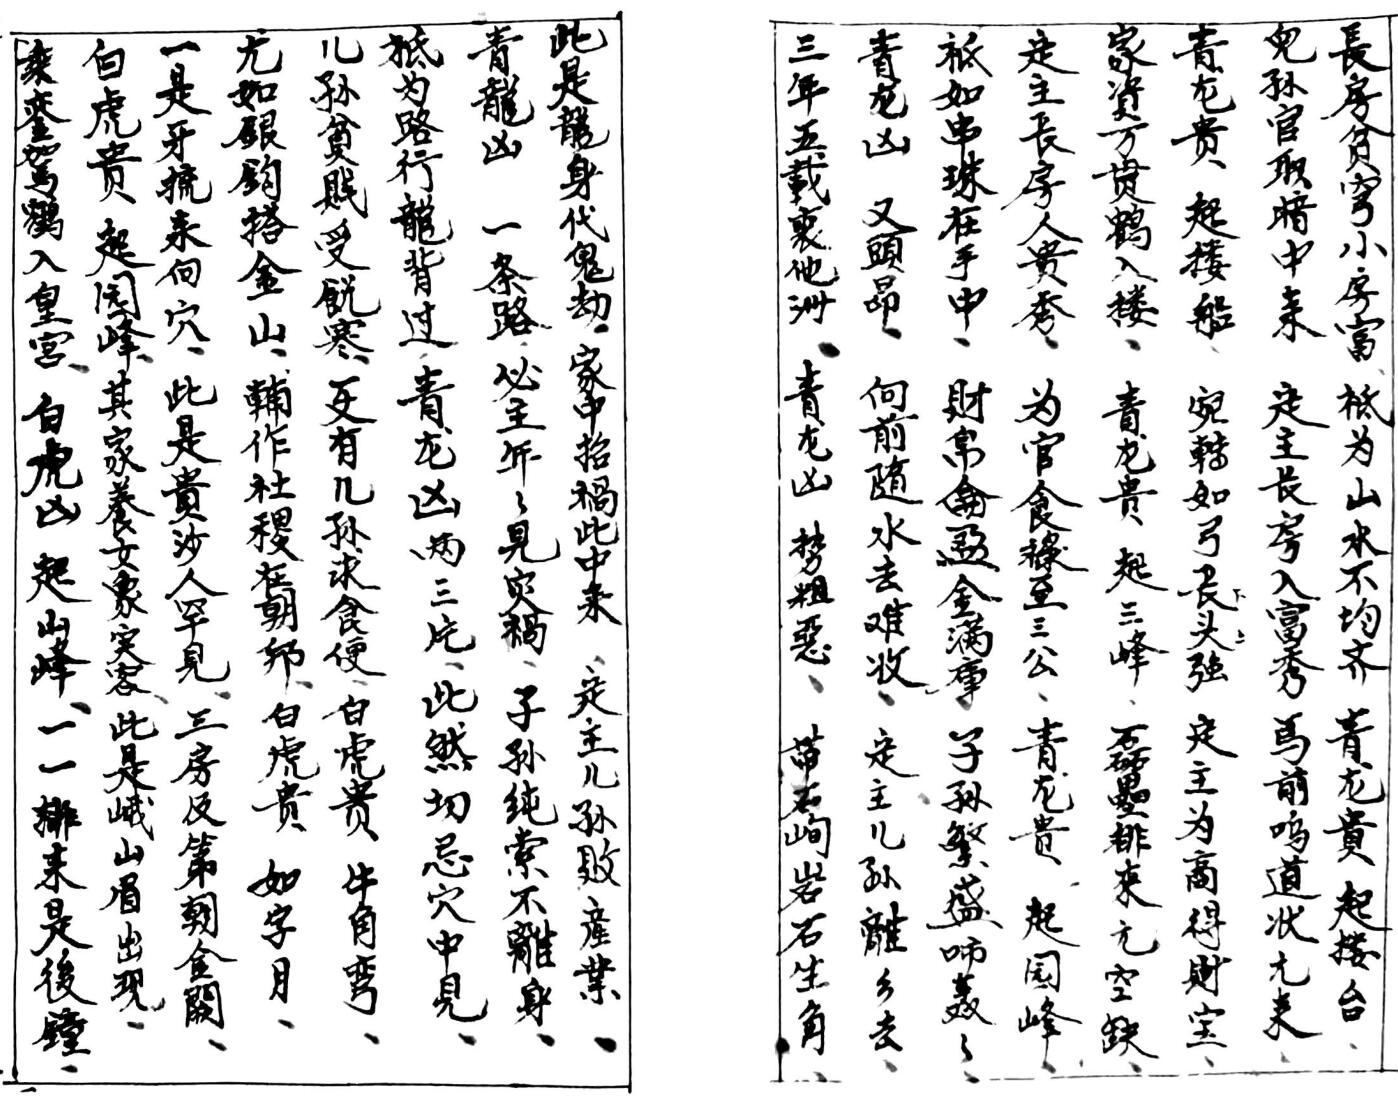 長房貧窮小房富 祗为山水不均齐 青龙貴 起楼台、
兒孙官职暗中来 定主長房入富秀 馬前鸣道状元来
青龙贵 起楼船、 宛轉如弓長头强 定主为商得財宝、
家資万贯鹤入楼、 青龙贵 起三峰、 磊磊排来无空缺
定主長房人贵秀、 为官食禄至三公、 青龙贵 起园峰、
祗如串珠在手中、 財帛禽点金满庫 子孙繁盛啼姦々、
青龙凶 又頭昂、 向前随水去难收、 定主儿孙離乡去、
三年五載裹他洲、 青龙凶 势粗恶、 带石峋岩石生角
此是龍身代鬼劫、家中招禍此中来、 定主儿孙败産業、
青龍凶 一条路、必主年々見灾禍、 子孙绳索不離身、
祗为路行龍背过、青龙凶 两三片、 此然切忌穴中見、
儿孙貧贱受飢寒、 更有儿孙求食便、 白虎贵 牛角弯、
尤如银鈎搭金山、輔作社稷在朝邦、 白虎贵 如字月、
一是牙梳来向穴、此是貴沙人罕見、 三房及第朝金闕、
白虎贵 起园峰、其家養女象宾客、 此是峨山眉出现、
乘鸾駕鹤入皇宫、 白虎凶 起山峰、一一排来是後鐘、